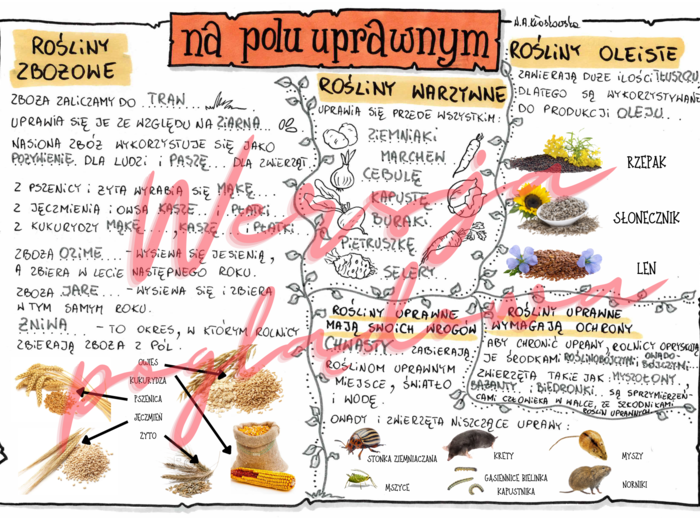 na polu uprawnym
ROŚLINY
ZBOŻOWE
ZBOŻA ZALICZAMY DO TRAW
UPRAWIA SIĘ JE ZE WZGLĘDU NA ZIARNA...
NASIONA ZBÓŻ WYKORZYSTUJE SIĘ JAKO
POŻYWIENIE DLA LUDZI I PASZĘ... DLA ZWIERZĄT.
Z PSZENICY I ŻYTA WYRABIA SIĘ MĄKĘ....
Z JĘCZMIENIA I OWSA KASZĘ... I PŁATKI...
Z KUKURYDZY MĄKĘ...., KASZĘ... I PŁATKI
ZBOŻA OZIME... - WYSIEWA SIĘ JESIENIĄ,
A ZBIERA W LECIE NASTĘPNEGO ROKU.
ZBOŻA JARE... - WYSIEWA SIĘ I ZBIERA
W TYM SAMYM ROKU.
ŻNIWA... - TO OKRES, W KTÓRYM ROLNICY
ZBIERAJĄ ZBOŻA Z PÓL
OWIES
KUKURYDZA
PSZENICA
JĘCZMIEŃ
ŻYTO
ROŚLINY WARZYWNE
UPRAWIA SIĘ PRZEDE WSZYSTKIM:
ZIEMNIAKI
MARCHEW
CEBULĘ
KAPUSTĘ
BURAKI
PIETRUSZKĘ
SELERY
ROŚLINY OLEISTE
ZAWIERAJĄ DUŻE ILOŚCI TŁUSZCZU,
DLATEGO SĄ WYKORZYSTYWANE
DO PRODUKCJI OLEJU...
RZEPAK
SŁONECZNIK
LEN
ROŚLINY UPRAWNE
MAJĄ SWOICH WROGÓW
CHWASTY... ZABIERAJĄ
ROŚLINOM UPRAWNYM
MIEJSCE, ŚWIATŁO
I WODĘ.
ROŚLINY UPRAWNE
WYMAGAJĄ OCHRONY
ABY CHRONIĆ UPRAWY, ROLNICY OPRYSKUJĄ
JE ŚRODKAMI ROŚLINOBÓJCZYMI I OWADO-
BÓJCZYMI.
ZWIERZĘTA TAKIE JAK: MYSZOŁOWY,
BAŻANTY I BIEDRONKI.. SĄ SPRZYMIERZEŃ-
CAMI CZŁOWIEKA W WALCE ZE SZKODNIKAMI
ROŚLIN UPRAWNYCH
OWADY I ZWIERZĘTA NISZCZĄCE UPRAWY:
STONKA ZIEMNIACZANA
KRETY
MYSZY
MSZYCE
GĄSIENNICE BIELINKA
KAPUSTNIKA
NORNIKI
Wersja